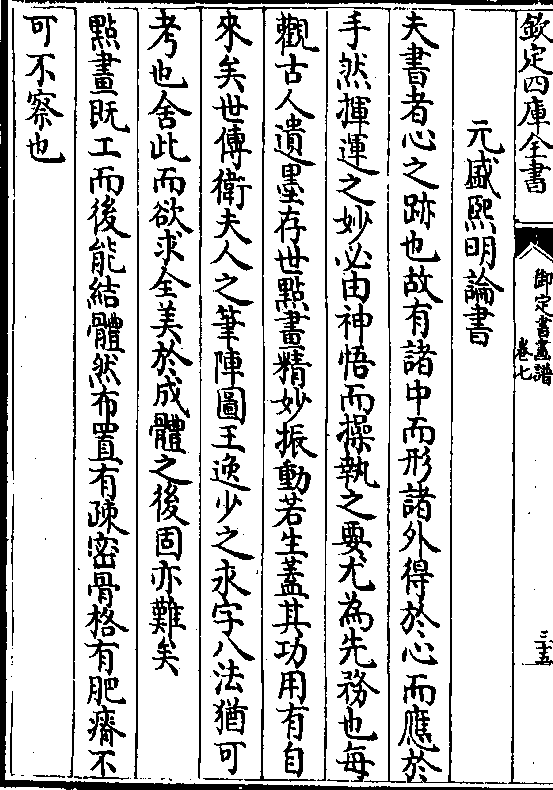 欽定四庫全書
御定書畫譜
卷七
三十五
元盛熙明論書
夫書者心之跡也故有諸中而形諸外得於心而應於
手然揮運之妙必由神悟而操執之要尤為先務也每
觀古人遺墨存世點畫精妙振動若生蓋其功用有自
來矣世傳衛夫人之筆陣圖王逸少之永字八法猶可
考也舍此而欲求全美於成體之後固亦難矣
點畫既工而後能結體然布置有疎密骨格有肥瘠不
可不察也